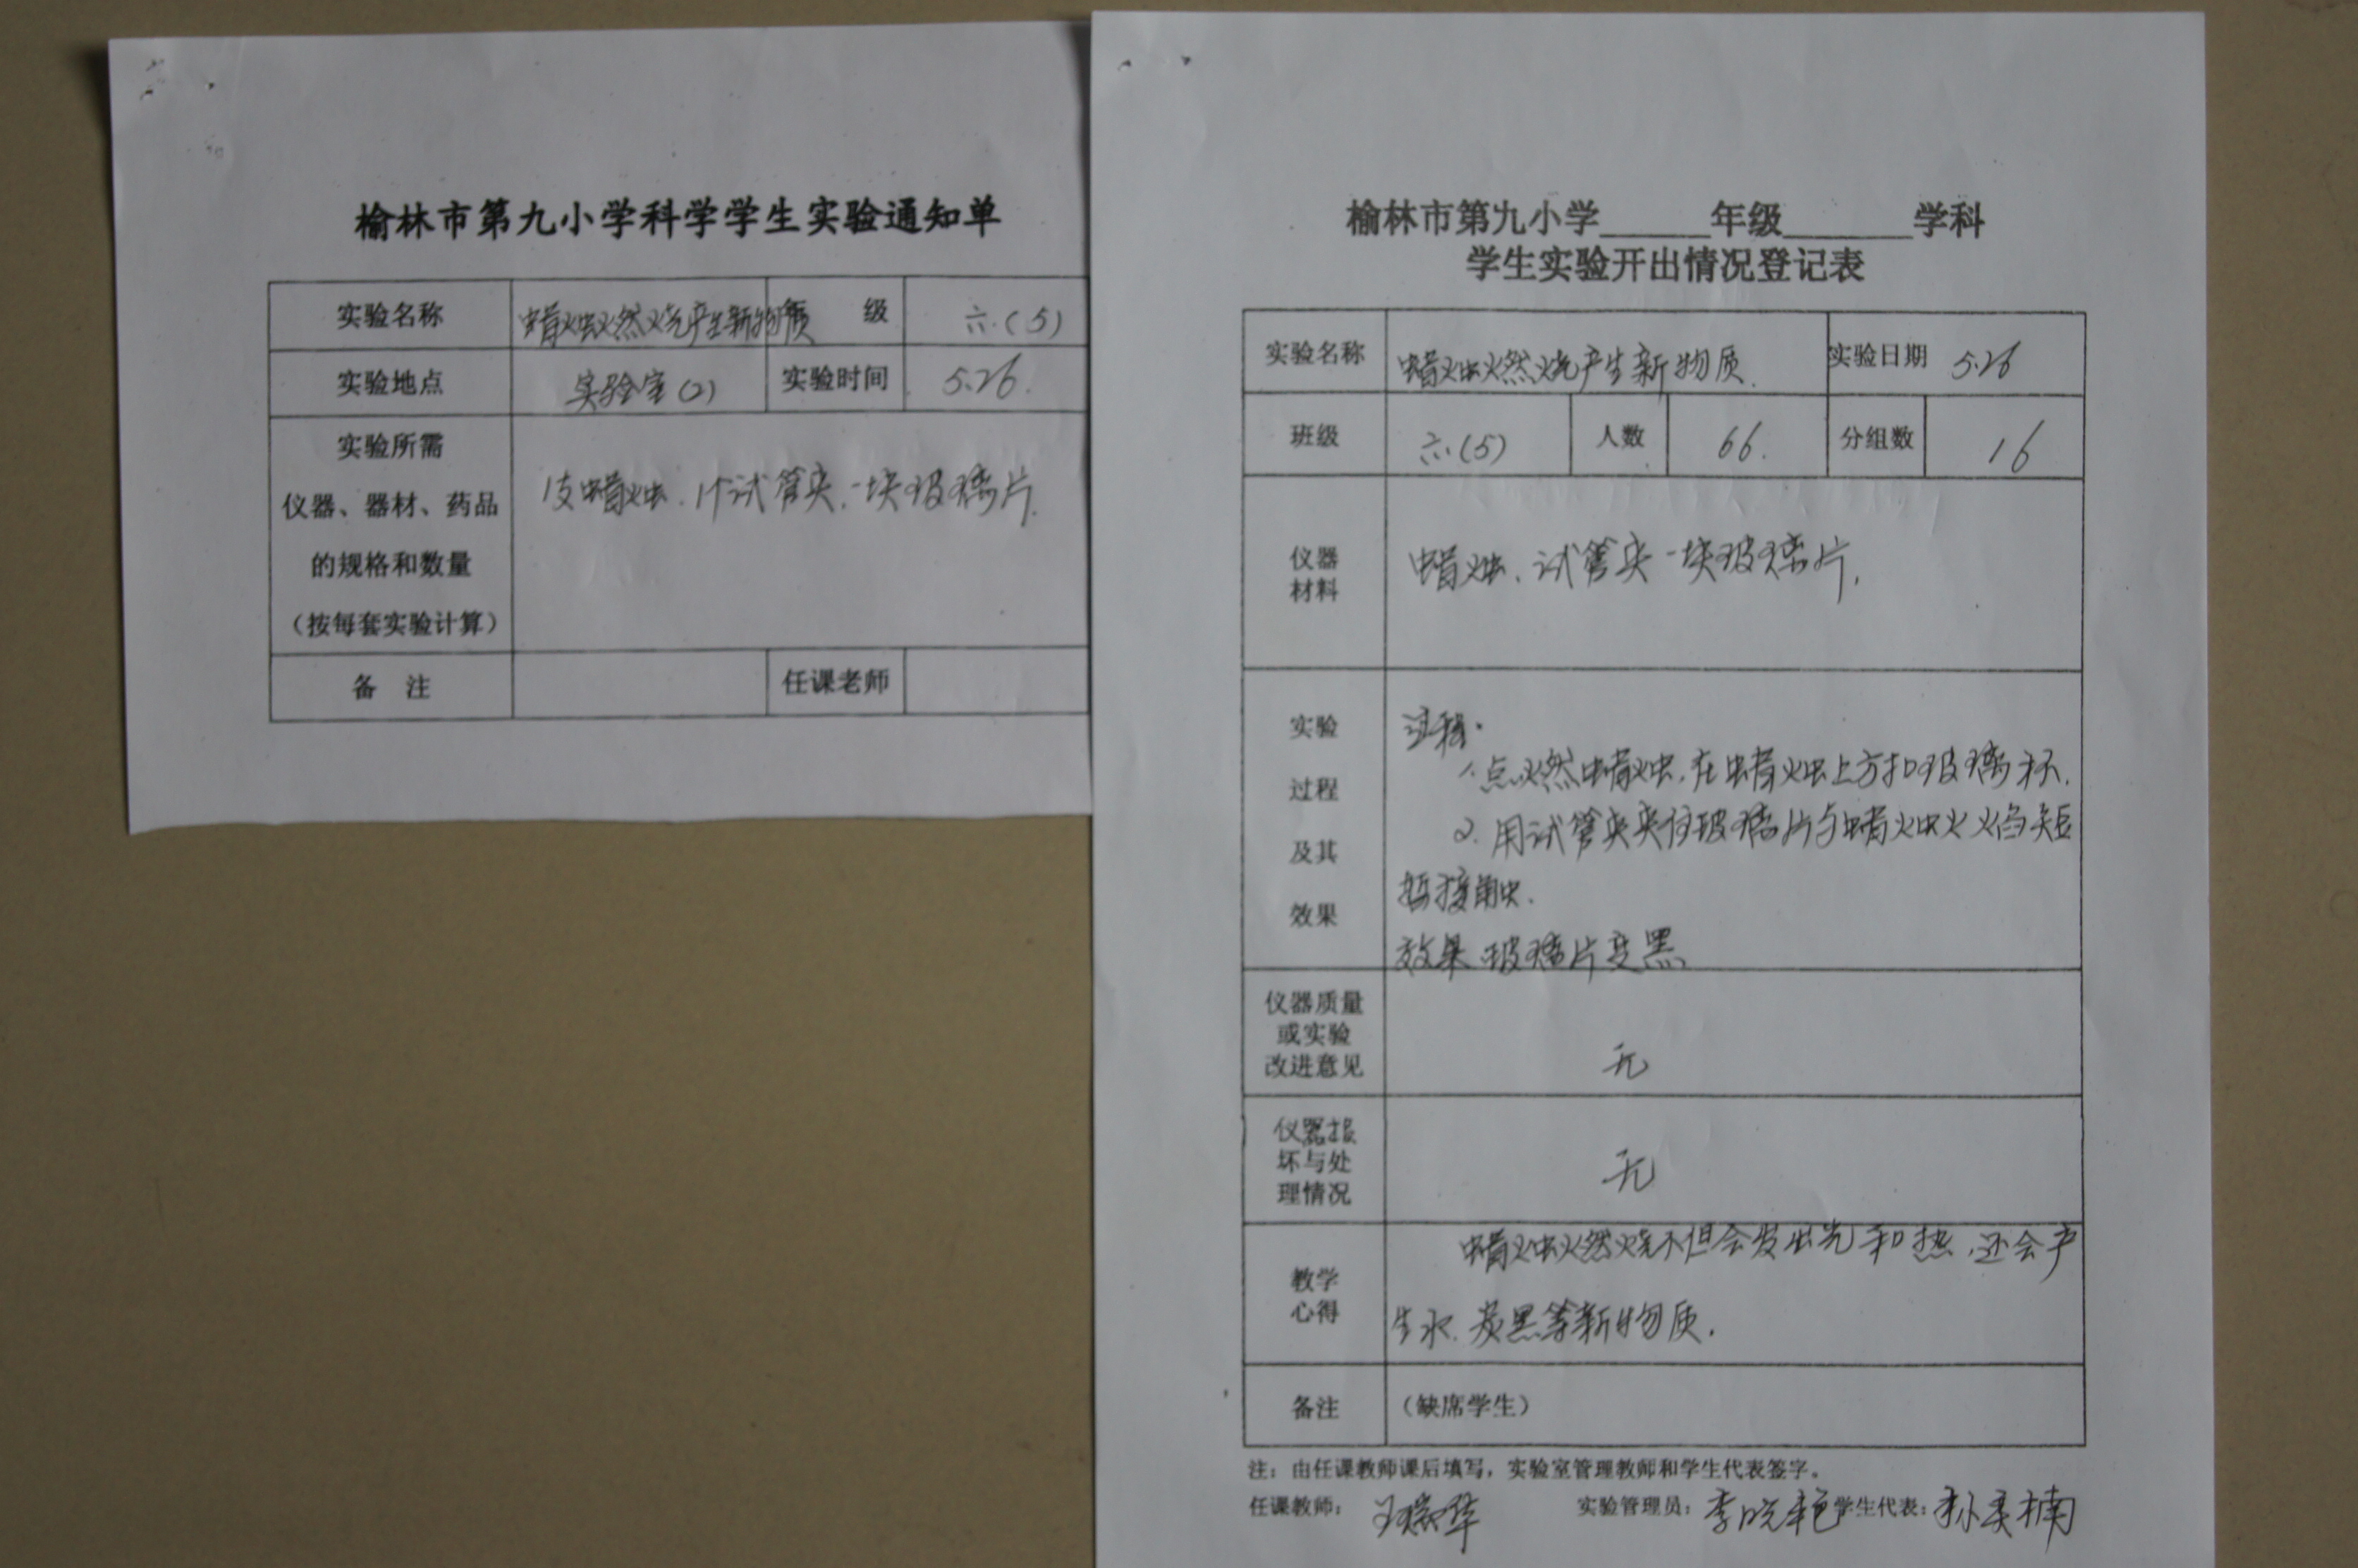 榆林市第九小学科学学生实验通知单
实验名称 蜡烛燃烧产生新物质 级 六(5)
实验地点 实验室(2) 实验时间 5.26.
实验所需
仪器、器材、药品
的规格和数量
(按每套实验计算)
1支蜡烛.1个试管夹.一块玻璃片.
备 注 任课老师
榆林市第九小学______年级_______学科
学生实验开出情况登记表
实验名称 蜡烛燃烧产生新物质. 实验日期 5.26
班级 六(5) 人数 66. 分组数 16
仪器
材料
蜡烛、试管夹一块玻璃片,
实验
过程
及其
效果
过程.
1.点燃蜡烛.在蜡烛上方扣玻璃杯.
2.用试管夹夹住玻璃片与蜡烛火焰短
暂接触.
效果 玻璃片变黑
仪器质量
或实验
改进意见
无
仪器报
坏与处
理情况
无
教学
心得
蜡烛燃烧不但会发出光和热,还会产
生水.炭黑等新物质.
备注 (缺席学生)
注:由任课教师课后填写,实验室管理教师和学生代表签字。
任课教师: 王瑞华 实验管理员: 李晓艳 学生代表: